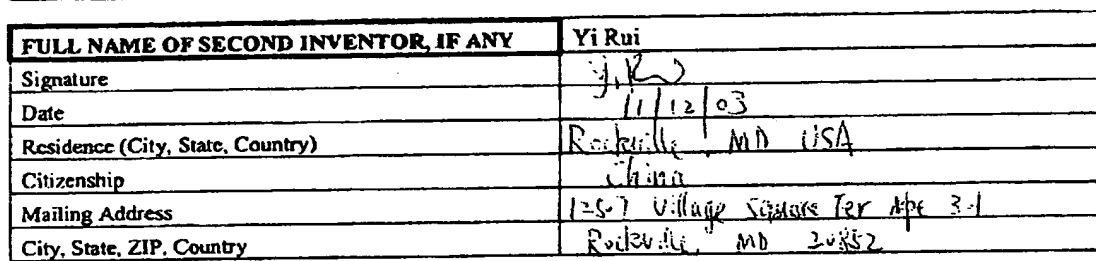 FULL NAME OF SECOND INVENTOR, IF ANY Yi Rui
Signature
Date 11/12/03
Residence (City, State, Country) Rockville, MD USA
Citizenship China
Mailing Address Village Square Ter Apt 3-1
City, State, ZIP, Country Rockville, MD 20852